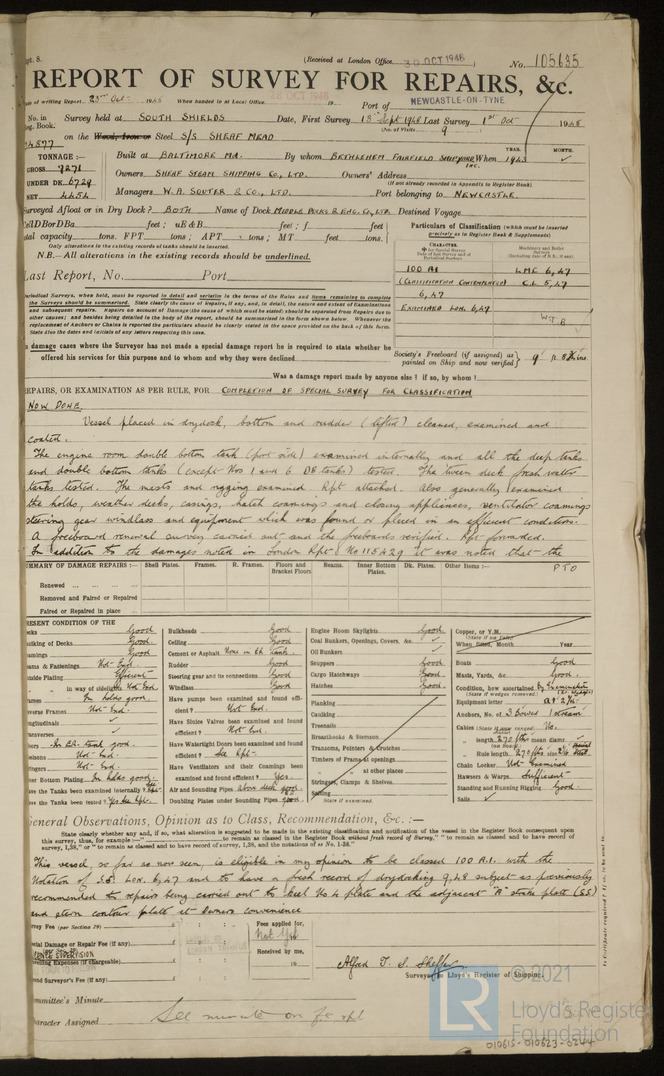 pt. 8.
(Received at London Office 30 OCT 1948 )
No. 105635
REPORT OF SURVEY FOR REPAIRS, &c.
of writing Report 25th Oct 1948 When handed in at Local Office OCT 1948 19 Port of NEWCASTLE-ON-TYNE
No. in Survey held at SOUTH SHIELDS Date, First Survey 13th Sept 1948 Last Survey 1st Oct 1948
Book. (No. of Visits 9 )
on the Wood, Iron or Steel S/S SHEAF MEAD
TONNAGE:— Built at BALTIMORE MD. By whom BETHLEHEM FAIRFIELD SHIPYARD INC. When YEAR. 1943 MONTH.
GROSS 7271 Owners SHEAF STEAM SHIPPING CO., LTD. Owners' Address
UNDER DK. 6729 (If not already recorded in Appendix to Register Book)
NET 4454 Managers W. A. SOUTER & CO., LTD. Port belonging to NEWCASTLE
Surveyed Afloat or in Dry Dock? BOTH Name of Dock MIDDLE DOCKS & ENG. CO., LTD. Destined Voyage
Cell D B or D Ba feet; uE & B feet; f feet
total capacity tons. FPT tons; APT tons; MT feet tons.
Only alterations in the existing records of tanks should be inserted.
N.B.—All alterations in the existing records should be underlined.
Last Report, No. Port
Particulars of Classification (which must be inserted
precisely as in Register Book & Supplements)
CHARACTER.
100 A1 LMC 6,47
(CLASSIFICATION CONTEMPLATED) CL 5,47
6,47
EXAMINED LON. 6,47
W.T.B
Periodical Surveys, when held, must be reported in detail and seriatim in the terms of the Rules and items remaining to complete
the Surveys should be summarised. State clearly the cause of Repairs, if any, and, in detail, the nature and extent of Examinations
and subsequent repairs. Repairs on account of Damage (the cause of which must be stated) should be separated from Repairs due to
other causes; and besides being detailed in the body of the report, should be summarised in the form shown below. Whenever the
replacement of Anchors or Chains is reported the particulars should be clearly stated in the space provided on the back of this form.
State also the dates and initials of any letters respecting this case.
In damage cases where the Surveyor has not made a special damage report he is required to state whether he
offered his services for this purpose and to whom and why they were declined
Society's Freeboard (if assigned) as
painted on Ship and now verified
Was a damage report made by anyone else? if so, by whom?
REPAIRS, OR EXAMINATION AS PER RULE, FOR COMPLETION OF SPECIAL SURVEY FOR CLASSIFICATION
NOW DONE.
Vessel placed in drydock, bottom and rudder (lifted) cleaned, examined and
coated.
The engine room double bottom tank (port side) examined internally and all the deep tanks
and double bottom tanks (except Nos 1 and 6 DB tanks) tested. The 'tween deck fresh water
tanks tested. The masts and rigging examined. Rpt attached. Also generally examined
the holds, weather decks, casings, hatch coamings and closing appliances, ventilator coamings
steering gear windlass and equipment which was found or placed in an efficient condition.
A freeboard renewal survey carried out and the freeboards verified. Rpt forwarded.
In addition to the damages noted in London Rpt No 115429 it was noted that the
PTO
SUMMARY OF DAMAGE REPAIRS:— Shell Plates. Frames. R. Frames. Floors and Bracket Floors Beams. Inner Bottom Plates. Dk. Plates. Other Items:—
Renewed
Removed and Faired or Repaired
Faired or Repaired in place
PRESENT CONDITION OF THE
Decks Good
Caulking of Decks Good
Coamings Good
Beams & Fastenings Not Exd
Outside Plating Efficient
" " in way of sidelights Not Exd
Frames In holds good
Reverse Frames Not Exd.
Longitudinals ✓
Transverses ✓
Floors In ER. tank good
Keelsons Not Exd
Stringers Not Exd
Inner Bottom Plating In holds good
Have the Tanks been examined internally?
Have the Tanks been tested? Yes See Rpt.
Bulkheads Good
Ceiling Good
Cement or Asphalt None in ER tank
Rudder Good
Steering gear and its connections Good
Windlass Good
Have pumps been examined and found efficient? Not Exd.
Have Sluice Valves been examined and found efficient? Not Exd
Have Watertight Doors been examined and found efficient? See Rpt.
Have Ventilators and their Coamings been examined and found efficient? Yes
Air and Sounding Pipes Above deck good
Doubling Plates under Sounding Pipes good
Engine Room Skylights Good
Coal Bunkers, Openings, Covers, &c. ✓
Oil Bunkers ✓
Scuppers Good
Cargo Hatchways Good
Hatches Good
Planking
Caulking
Treenails
Breasthooks & Stemson
Transoms, Pointers & Crutches
Timbers of Frame at openings
" " at other places
Stringers, Clamps & Shelves
Salting
State if examined.
Copper, or Y.M.
When fitted, Month Year
Boats Good
Masts, Yards, &c. Good
Condition, how ascertained By Examination
(State if wedges removed)
Equipment letter
Anchors, No. of 3 Bower 1 stream
Cables (State if now ranged) Yes
" length 270 fths
Rule length 270 fths
Chain Locker Not Examined
Hawsers & Warps Sufficient
Standing and Running Rigging Good.
Sails ✓
General Observations, Opinion as to Class, Recommendation, &c. :—
State clearly whether any and, if so, what alteration is suggested to be made in the existing classification and notification of the vessel in the Register Book consequent upon
This vessel, so far as now seen, is eligible in my opinion to be classed 100 A.1. with the
notation of S.S. Lon. 6,47 and to have a fresh record of drydocking 9,48 subject as previously
recommended to repairs being carried out to keel No 4 plate and the adjacent "A" strake plate (SS)
and stern contour plate at Owners convenience
Survey Fee (per Section 29) £
Fees applied for, Not Yet
Special Damage or Repair Fee (if any) £
Received by me,
Travelling Expenses (if chargeable) £
Second Surveyor's Fee (if any) £
Alfred T. S. Sheffer
Surveyor to Lloyd's Register of Shipping.
Committee's Minute
Character Assigned See minute on
© 2021
LR
Lloyd's Register
Foundation
010615-010623-0244